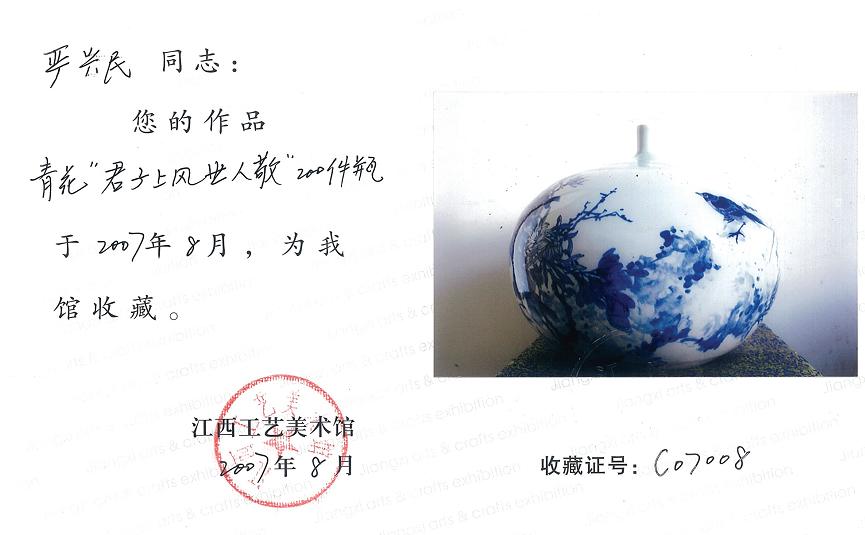 严兴民 同志：
您的作品
青花“君子上风世人敬”200件瓶
于 2007年 8月，为我
馆收藏。
江西工艺美术馆
2007年 8月
收藏证号：C07008
Jiangxi arts & crafts exhibition